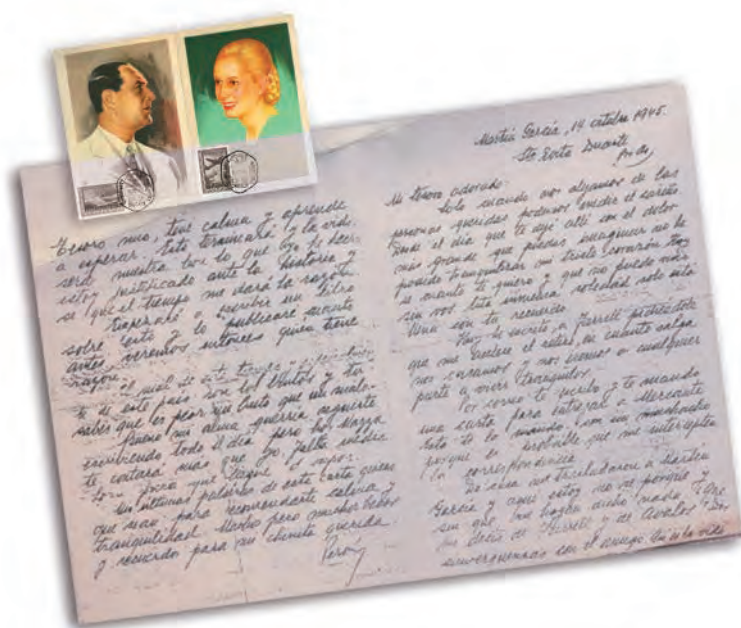 Martín García, 14 octubre 1945.
Sta Evita Duarte
Mi tesoro adorado:
Solo cuando nos alejamos de las
personas queridas podemos medir el cariño.
Desde el día que te dejé allí con el dolor
más grande que puedas imaginar no he
podido tranquilizar mi triste corazón. Hoy
sé cuanto te quiero y que no puedo vivir
sin vos. Esta inmensa soledad solo está
llena con tu recuerdo.
Hoy he escrito a Farrell pidiéndole
que me acelere el retiro, en cuanto salga
nos casamos y nos iremos a cualquier
parte a vivir tranquilos.
Por correo te escribo y te mando
una carta para entregar a Mercante
Esta te la mando con un muchacho
porque es probable que me intercepten
la correspondencia.
De casa me trasladaron a Martín
García y aquí estoy no sé porqué y
sin que me hayan dicho nada. ¿Que
me decís de Farrell y de Avalos? Dos
sinvergüenzas con el amigo. Así es la vida
Tesoro mío, tené calma y aprende
a esperar. Esto terminará y la vida
será nuestra. Con lo que yo he
estoy justificado ante la historia y
sé que el tiempo me dará la razón.
a escribir un libro
sobre esto y lo publicaré cuanto
antes, veremos entonces quien tiene
razón.
El mal de este tiempo y especialmente
de este país son los brutos y tu
sabes que es peor un bruto que un malo.
Bueno mi alma querría seguirte
escribiendo todo el día pero hoy Mazza
te contará más que yo. Falta media
hora para que llegue el vapor.
Mis últimas palabras de esta carta quiero
que sean para recomendarte calma y
tranquilidad. Muchos pero muchos besos
y recuerdos para mi chinita querida.
Perón